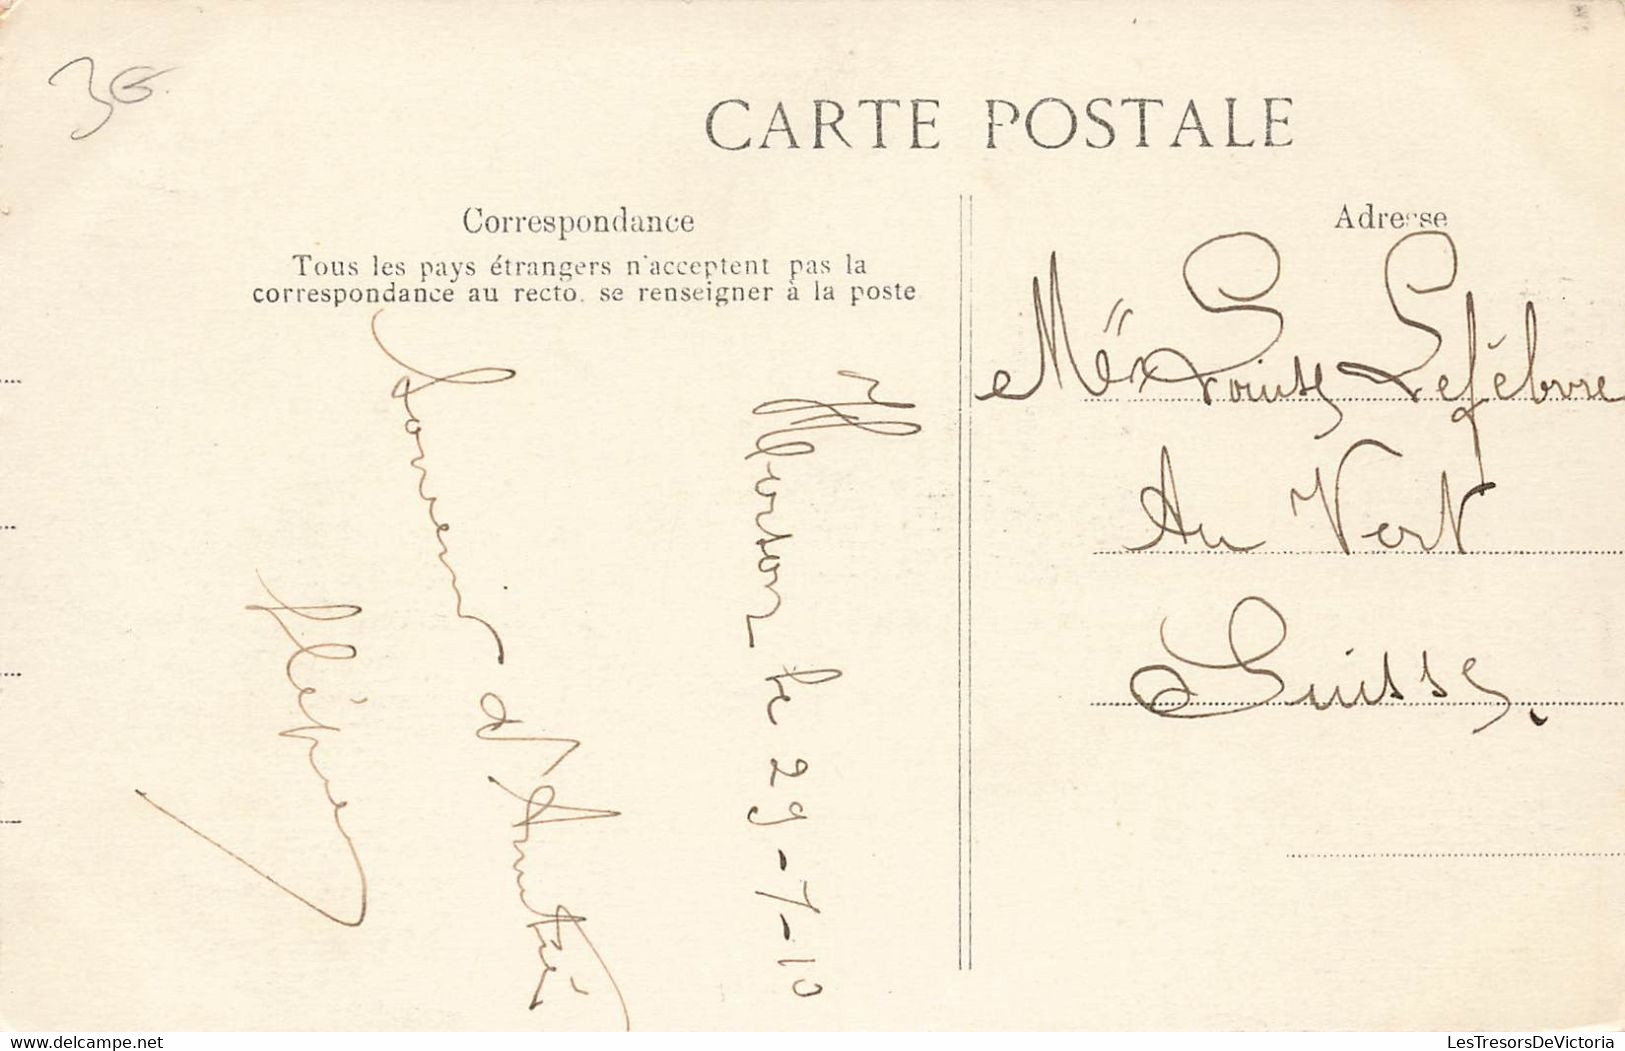 36
CARTE POSTALE
Correspondance
Tous les pays étrangers n'acceptent pas la
correspondance au recto. se renseigner à la poste
le 29-7-10
Souvenir d'Amitié
Adresse
Louise Lefébvre
Au Vert
Suisse.
delcampe.net
LesTresorsDeVictoria